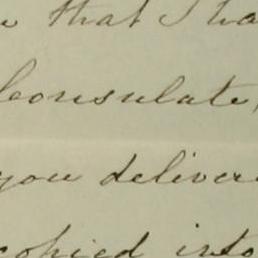 that I
Consulate,
you deliver
copied into